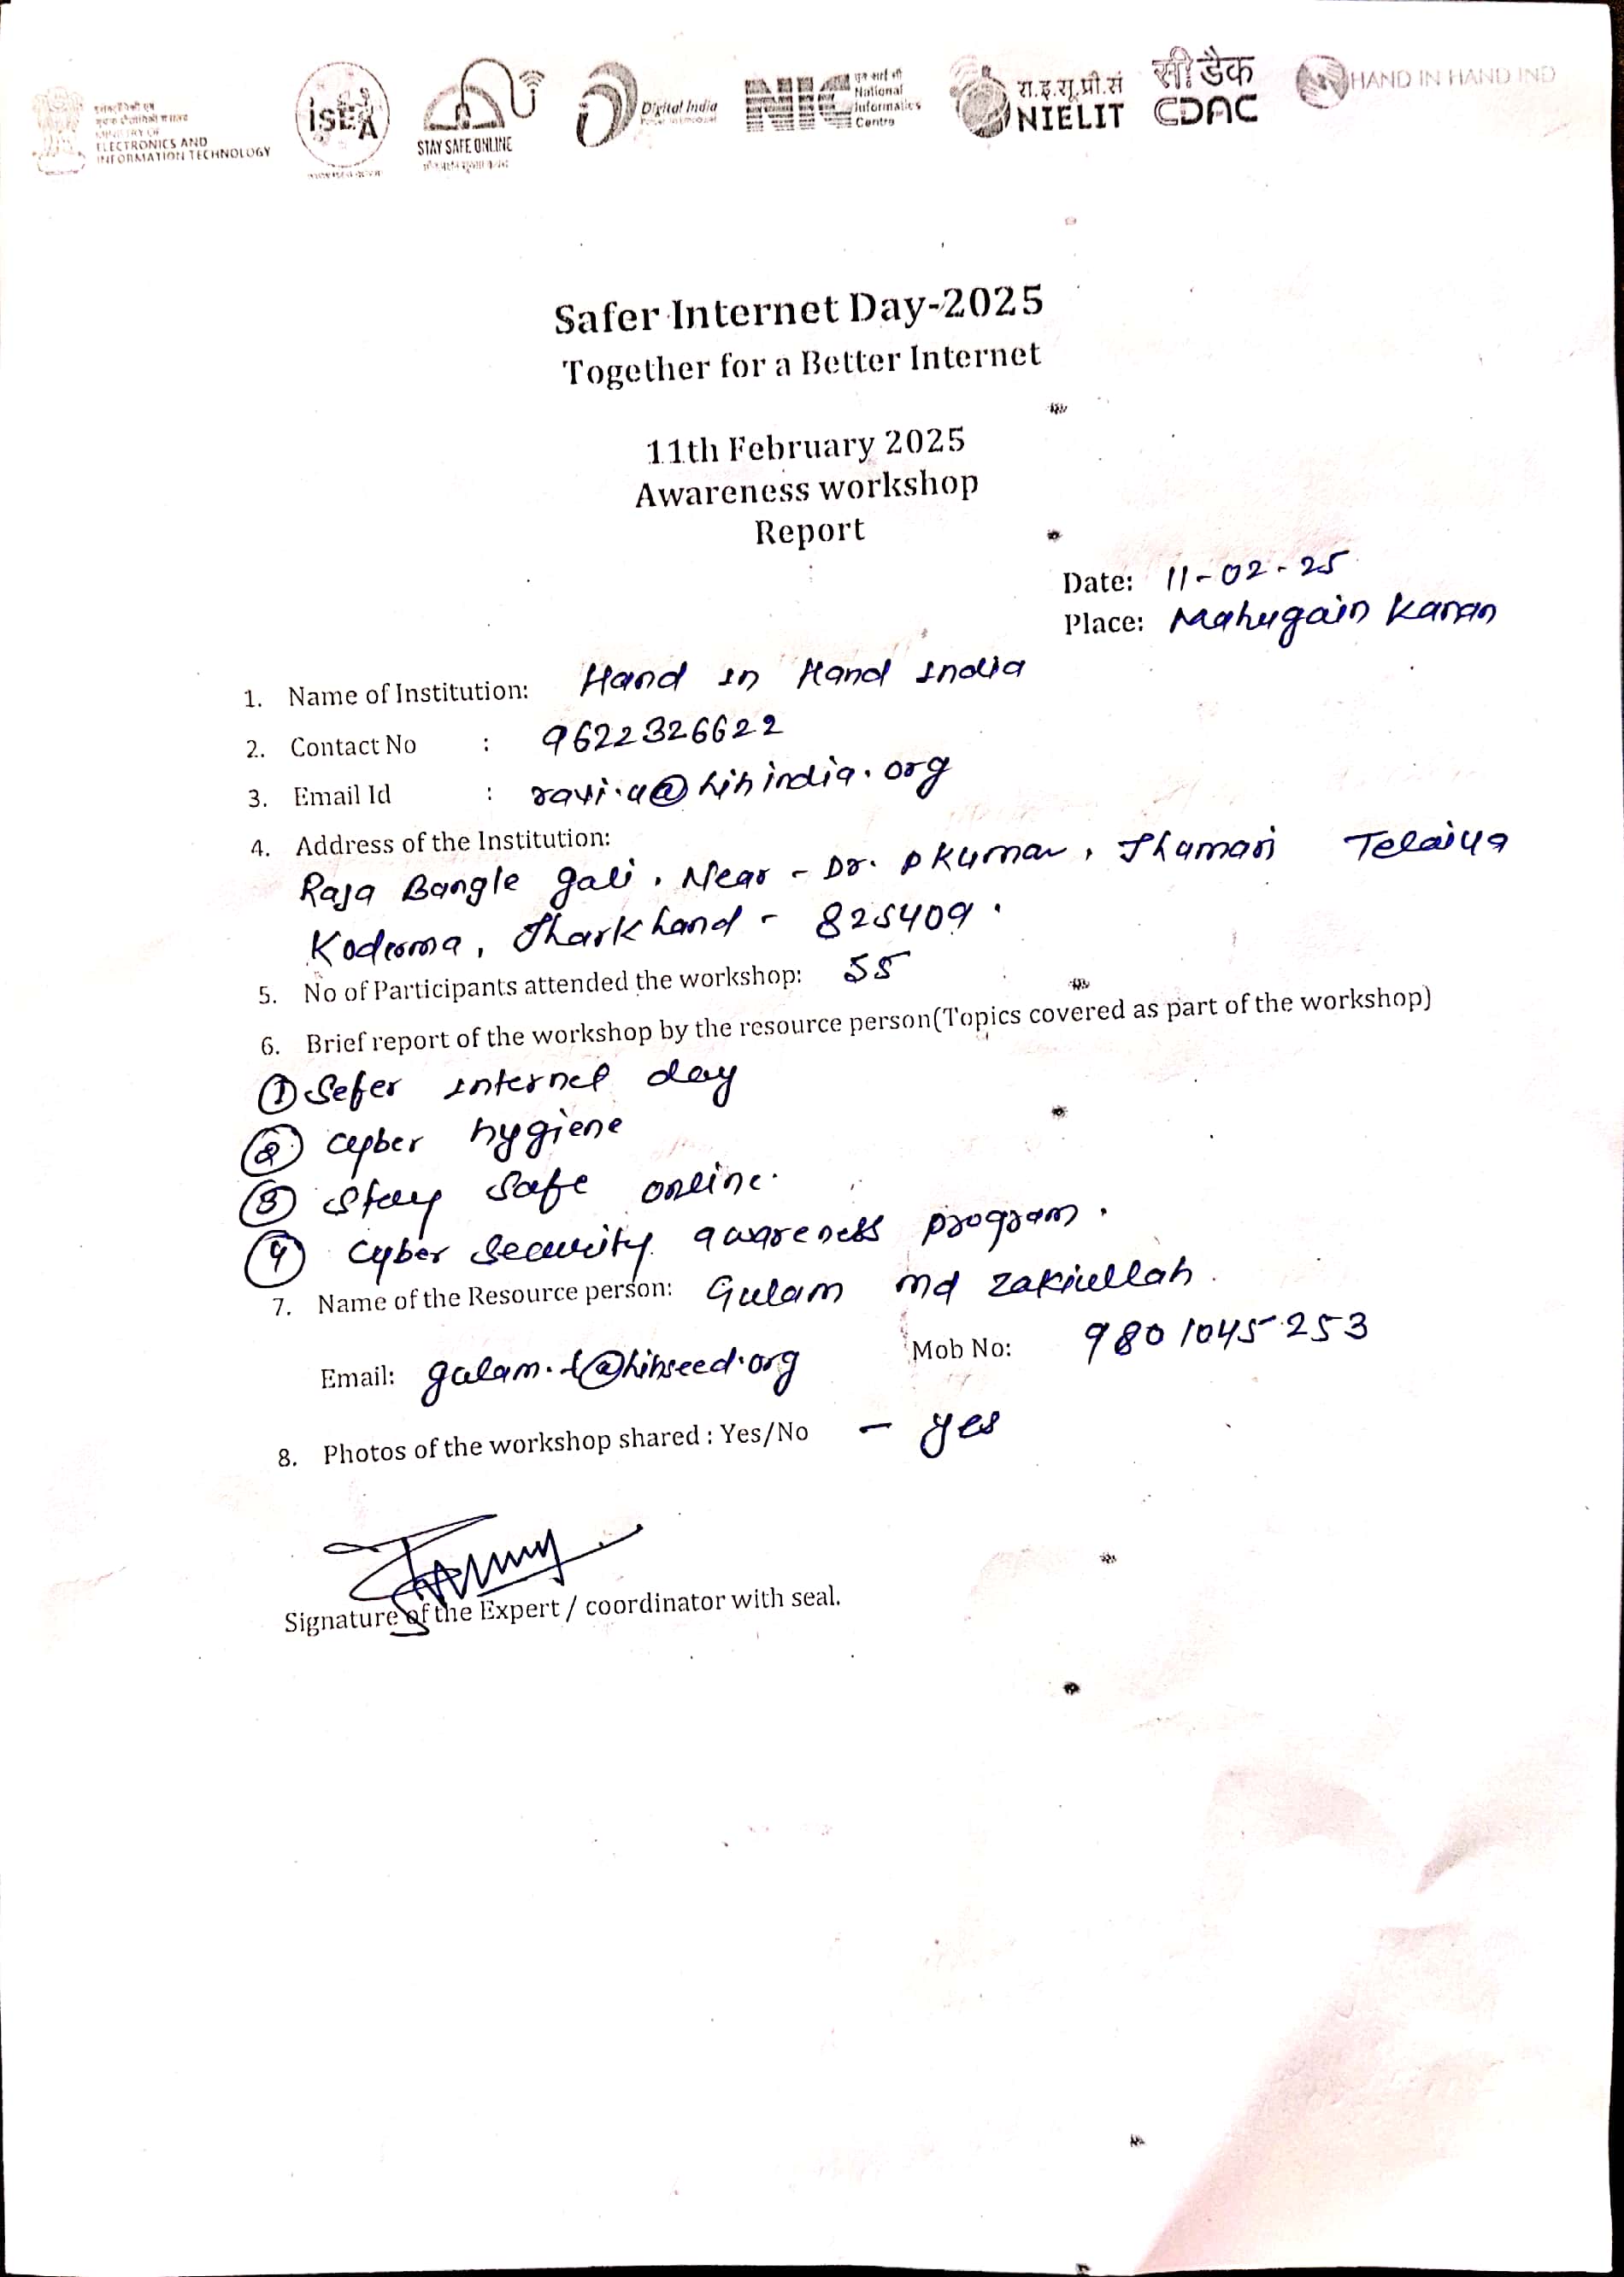 MINISTRY OF
ELECTRONICS AND
INFORMATION TECHNOLOGY
iSEA
STAY SAFE ONLINE
Digital India
Power To Empower
NIC
एन आई सी
National
Informatics
Centre
रा.इ.सू.प्रौ.सं
NIELIT
सी डैक
CDAC
HAND IN HAND IND
Safer Internet Day-2025
Together for a Better Internet
11th February 2025
Awareness workshop
Report
Date: 11-02-25
Place: Mahugain Karan
1. Name of Institution: Hand in Hand India
2. Contact No : 9622326622
3. Email Id : ravi.a@hihindia.org
4. Address of the Institution:
Raja Bangle gali, Near - Dr. P Kumar, Jhumari Telaiya
Koderma, Jharkhand - 825409.
5. No of Participants attended the workshop: 55
6. Brief report of the workshop by the resource person(Topics covered as part of the workshop)
① Sefer internet day
② Cyber hygiene
③ Stay Safe online.
④ Cyber Security awareness program.
7. Name of the Resource person: Gulam md zakiullah.
Email: gulam.t@hihseed.org Mob No: 9801045253
8. Photos of the workshop shared : Yes/No - yes
Signature of the Expert / coordinator with seal.